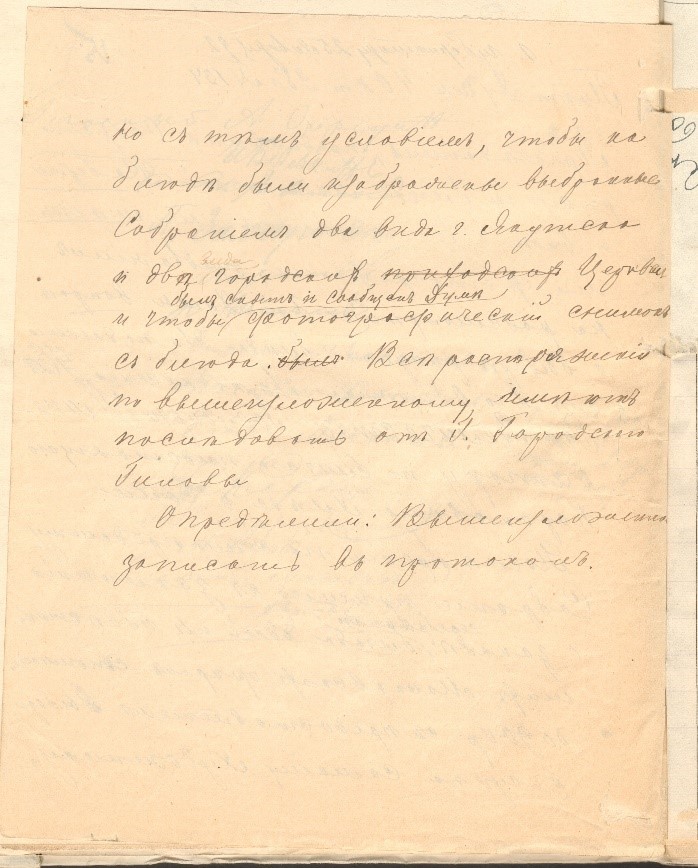 но съ тѣмъ условіемъ, чтобы на
блюдѣ были изображены выбранные
Собраніемъ два вида г. Якутска
вида
и двѣ городскія приходскія Церкви
былъ снятъ и сообщенъ Думѣ
и чтобы фотографическій снимокъ
съ блюда былъ. Всѣ распоряженія
по вышеизложенному имѣютъ
послѣдовать отъ Г. Городского
Головы
Опредѣлили: Вышеизложенное
записать въ протоколъ.